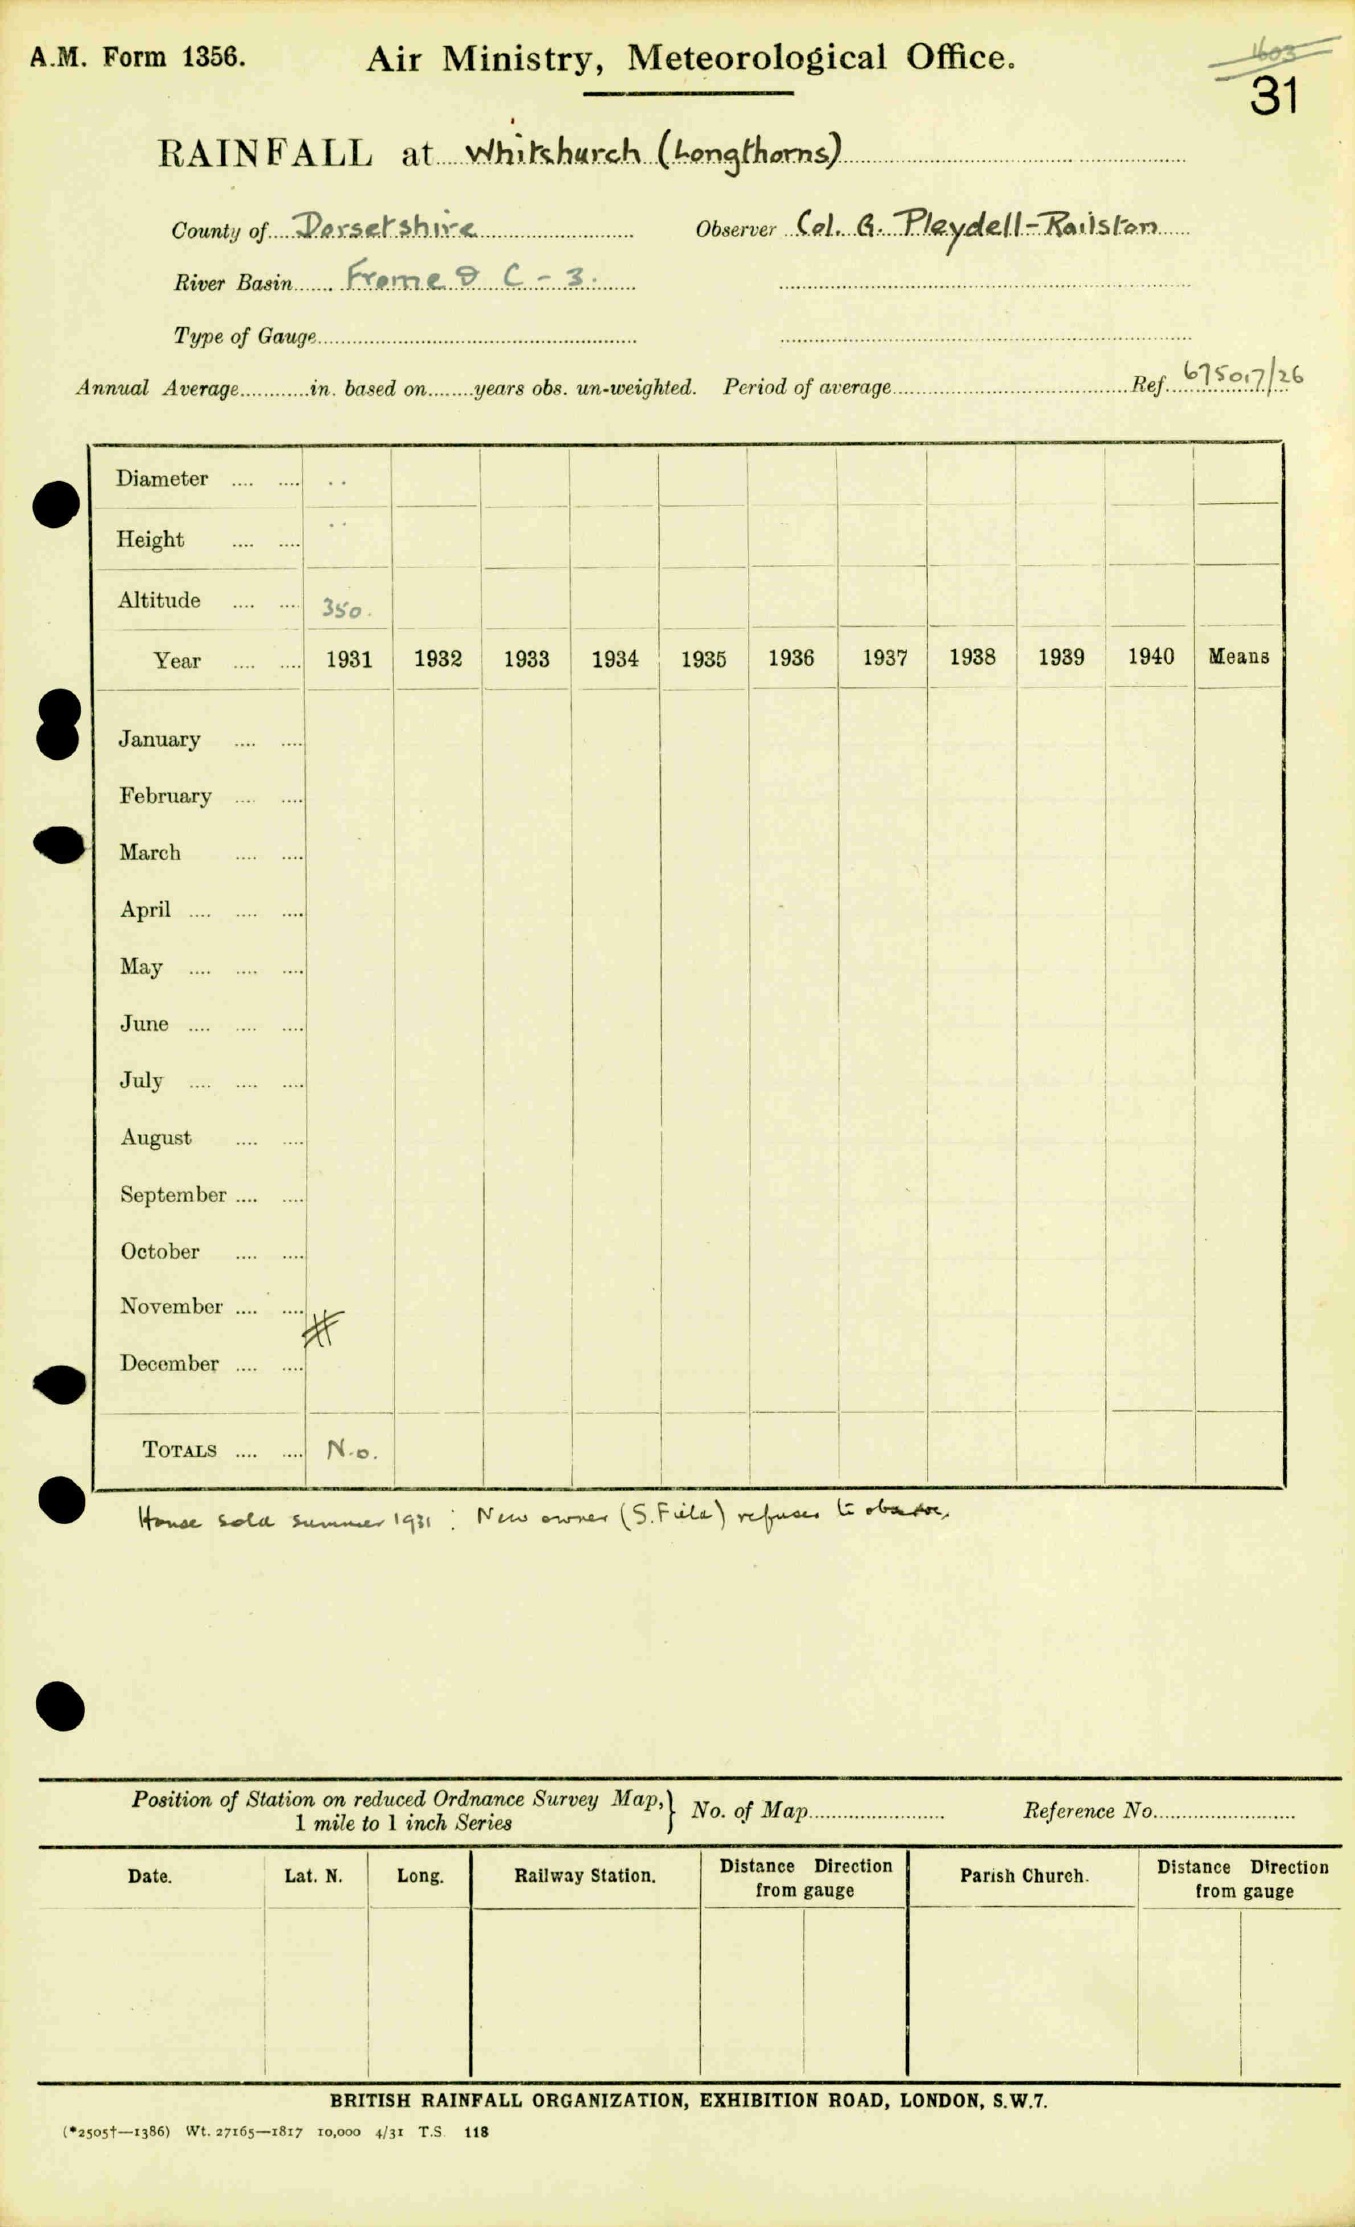 A.M. Form 1356.
Air Ministry, Meteorological Office.
1603
31
RAINFALL at Whitchurch (Longthorns)
County of Dorsetshire Observer Col. G. Pleydell-Railston
River Basin Frome & C - 3.
Type of Gauge
Annual Average in. based on years obs. un-weighted. Period of average Ref. 675017/26
Diameter .... .... ..
Height .... .... ..
Altitude .... .... 350.
Year .... .... 1931 1932 1933 1934 1935 1936 1937 1938 1939 1940 Means
January .... ....
February .... ....
March .... ....
April .... .... ....
May .... .... ....
June .... .... ....
July .... .... ....
August .... ....
September .... ....
October .... ....
November .... ....
#
December .... ....
TOTALS .... .... N.o.
House sold summer 1931 : New owner (S. Field) refuses to observe.
Position of Station on reduced Ordnance Survey Map, } No. of Map Reference No.
1 mile to 1 inch Series
Date. Lat. N. Long. Railway Station. Distance Direction from gauge Parish Church. Distance Direction from gauge
BRITISH RAINFALL ORGANIZATION, EXHIBITION ROAD, LONDON, S.W.7.
(*2505†—1386) Wt. 27165—1817 10,000 4/31 T.S. 118